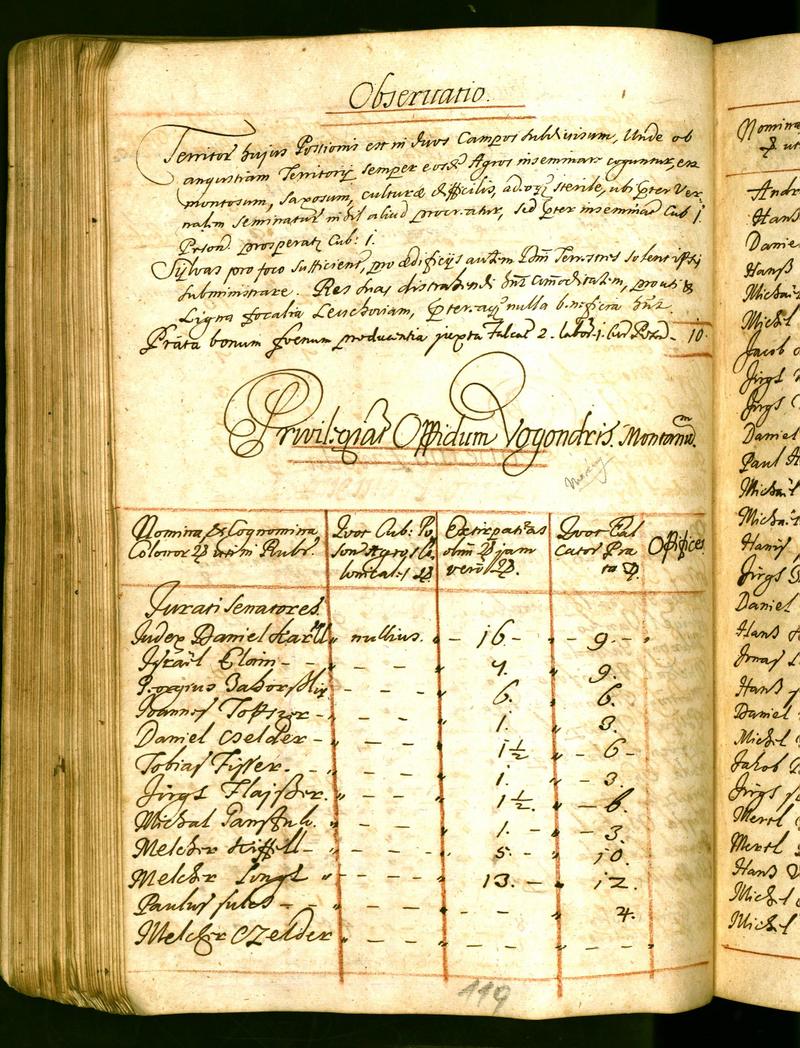 Observatio.
Territor hujus Postionis est in duos Campos subdivisum, Unde ob
angustiam Territorij semper eosdẽ Agros inseminare coguntur, est
montosum, saxosum, culturæ difficilis, adeoq; sterile, ubi Præter Ver-
nalem seminaturã nihil aliud procreatur, sed Præter inseminat Cub 1.
Poson. prosperatq Cub: 1.
Sylvas pro foco sufficient, pro ædificijs autem Dñi Terrestres solent
subministrare. Res suas distrahendi hñt Comoditatem, prouti &
Ligna focalia Leuchoviam, Præterea nulla beneficia hñt.
Prata bonum fœnum producentia juxta Falcat 2. labor. 1. Cur Prod - 10.
Privilegiat Oppidum Vogondris. Montanum.
Nomina, & Cognomina
Colonor utim Rubr.
Quot Cub. Po
son. Agros
Extirpatitias
olim jam
vero
Quot Fal
cator Pra
ta
Opifices
Jurati Senatores.
Judex Daniel Harll „ nullius. „ - 16. - „ - 9. - „
Israël Eloin - - „ - - - „ 4. „ 9.
Georgius - - - „ 6. „ 6.
Joannes Topszer - „ - - „ 1. „ 3.
Daniel Czelder - „ - - „ 1½ „ - 6 -
Tobias Fisser. - „ - - „ 1. „ - 3.
Jirgs Flajsszer. „ - - - „ 1½. „ - 6.
Michal „ - - - „ 1. - „ - 3.
Melcher Kiffell - „ - - - „ 5. - „ 10.
Melcher Lingl „ - - - - „ 13. - „ 12.
Paulus - - „ - - - „ - - „ 4.
Melcher Czelder „ - - - „ - - - „ - - „
119
Nomina
& ut
Andr
Hans
Danie
Hanß
Michaël
Michel
Jacob
Jirgs
Jirgs
Daniel
Paul H
Michaël
Micha
Hans
Jirgs
Daniel
Hans
Jonas
Hanß
Daniel
Michel
Jakob
Jirgs
Mertl
Mertl
Hans
Michel
Michel